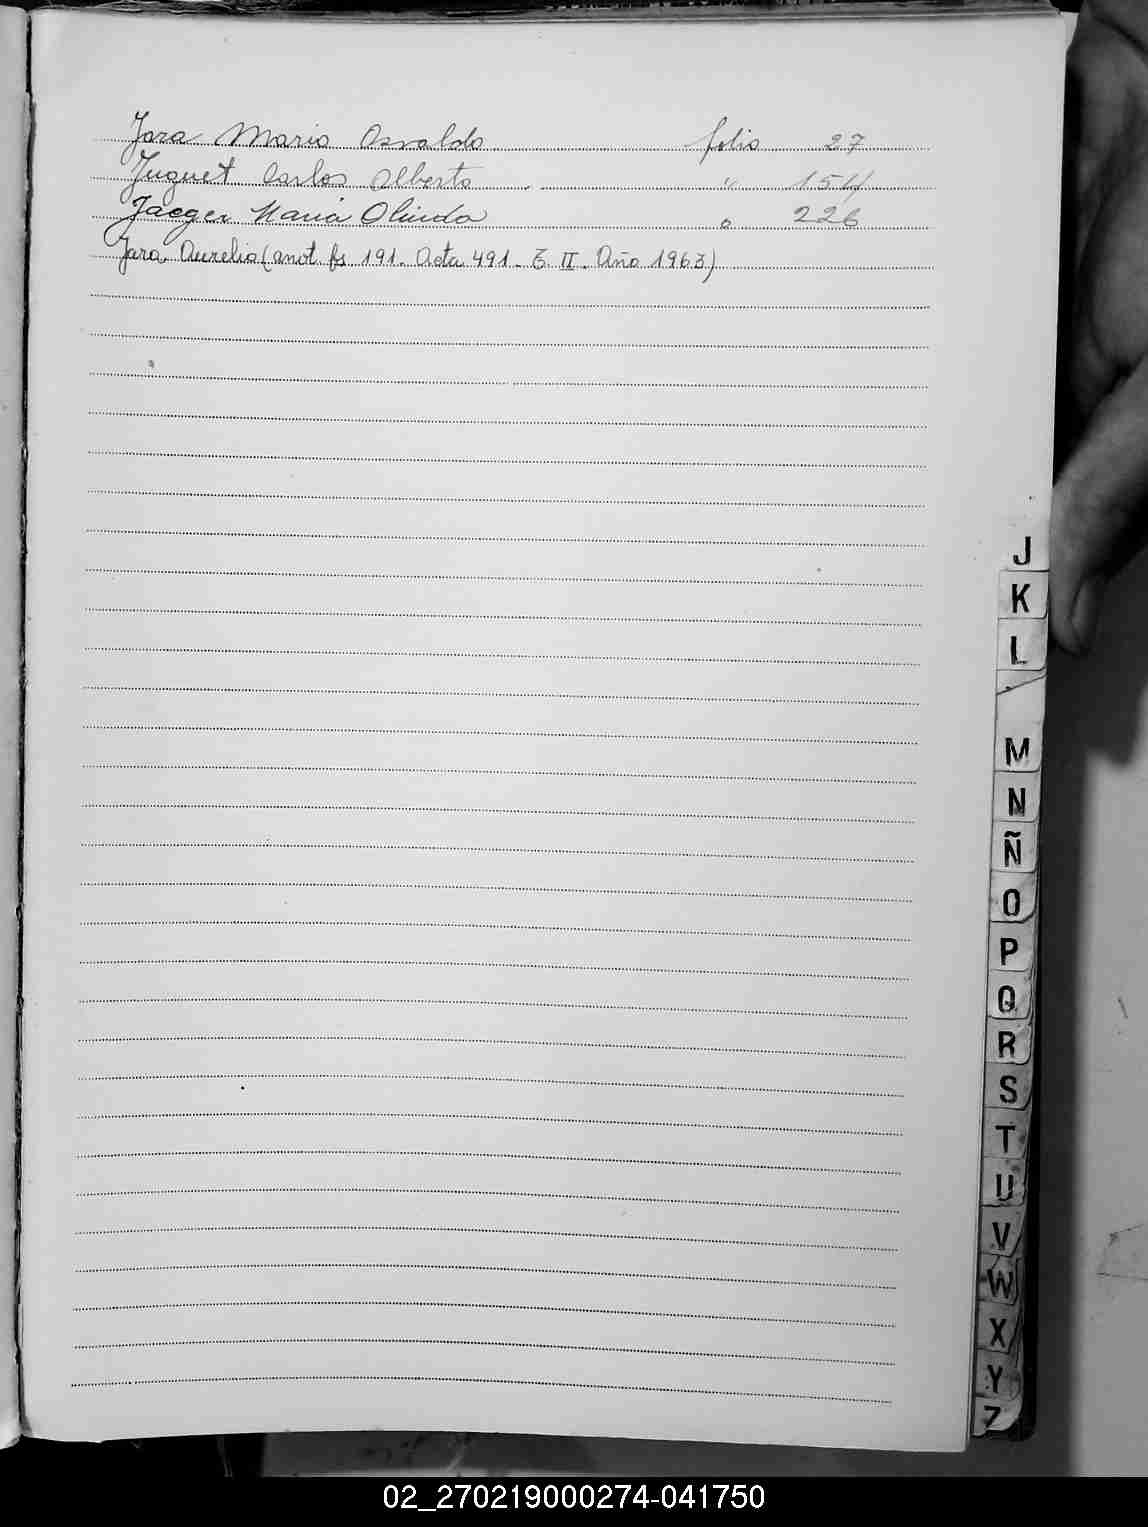 Jara Mario Osvaldo folio 27
Juguet Carlos Alberto " 154
Jaeger Maria Olinda " 226
Jara Aurelia (anot fs 191. Acta 491. T II. Año 1963)
J
K
L
M
N
Ñ
O
P
Q
R
S
T
U
V
W
X
Y
Z
02_270219000274-041750